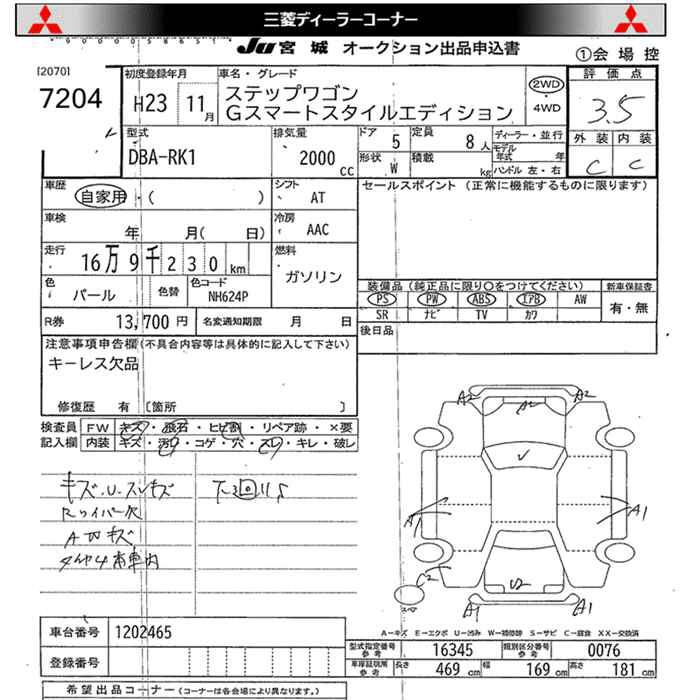 三菱ディーラーコーナー
JU 宮城 オークション出品申込書
①会場控
[2070]
7204
初度登録年月
H23 11月
車名・グレード
ステップワゴン
Gスマートスタイルエディション
2WD
・4WD
評価点
3.5
外装 内装
C C
型式
DBA-RK1
排気量
2000 cc
ドア 5
定員 8人
形状 W
積載 kg
ディーラー・並行
モデル年式 年
ハンドル 左・右
車歴
自家用・( )
シフト
AT
セールスポイント (正常に機能するものに限ります)
車検
年 月( 日)
冷房
AAC
走行
16万9千230km
燃料
ガソリン
色
パール
色替
色コード
NH624P
装備品 (純正品に限り○をつけてください)
新車保証書
PS PW ABS エアB AW
SR ナビ TV カワ
有・無
R券 13,700円
名変通知期限 月 日
後日品
注意事項申告欄 (不具合内容等は具体的に記入して下さい)
キーレス欠品
修復歴 有 〔箇所 〕
検査員記入欄
FW キズ・飛石・ヒビ割・リペア跡・×要
内装 キズ・汚れ・コゲ・穴・スレ・キレ・破レ
キズ.U.スレキズ
Rワイパー欠
タイヤ4本車内
A2 A2 A2
A1 A1
C2 U2
A1 A1
A-キズ E-エクボ U-凹み W-補修跡 S-サビ C-腐食 XX-交換済
車台番号 1202465
登録番号
型式指定番号 参考 16345
類別区分番号 参考 0076
車庫証明用 参考
長さ 469cm 幅 169cm 高さ 181cm
希望出品コーナー (コーナーは各会場により異なります。)